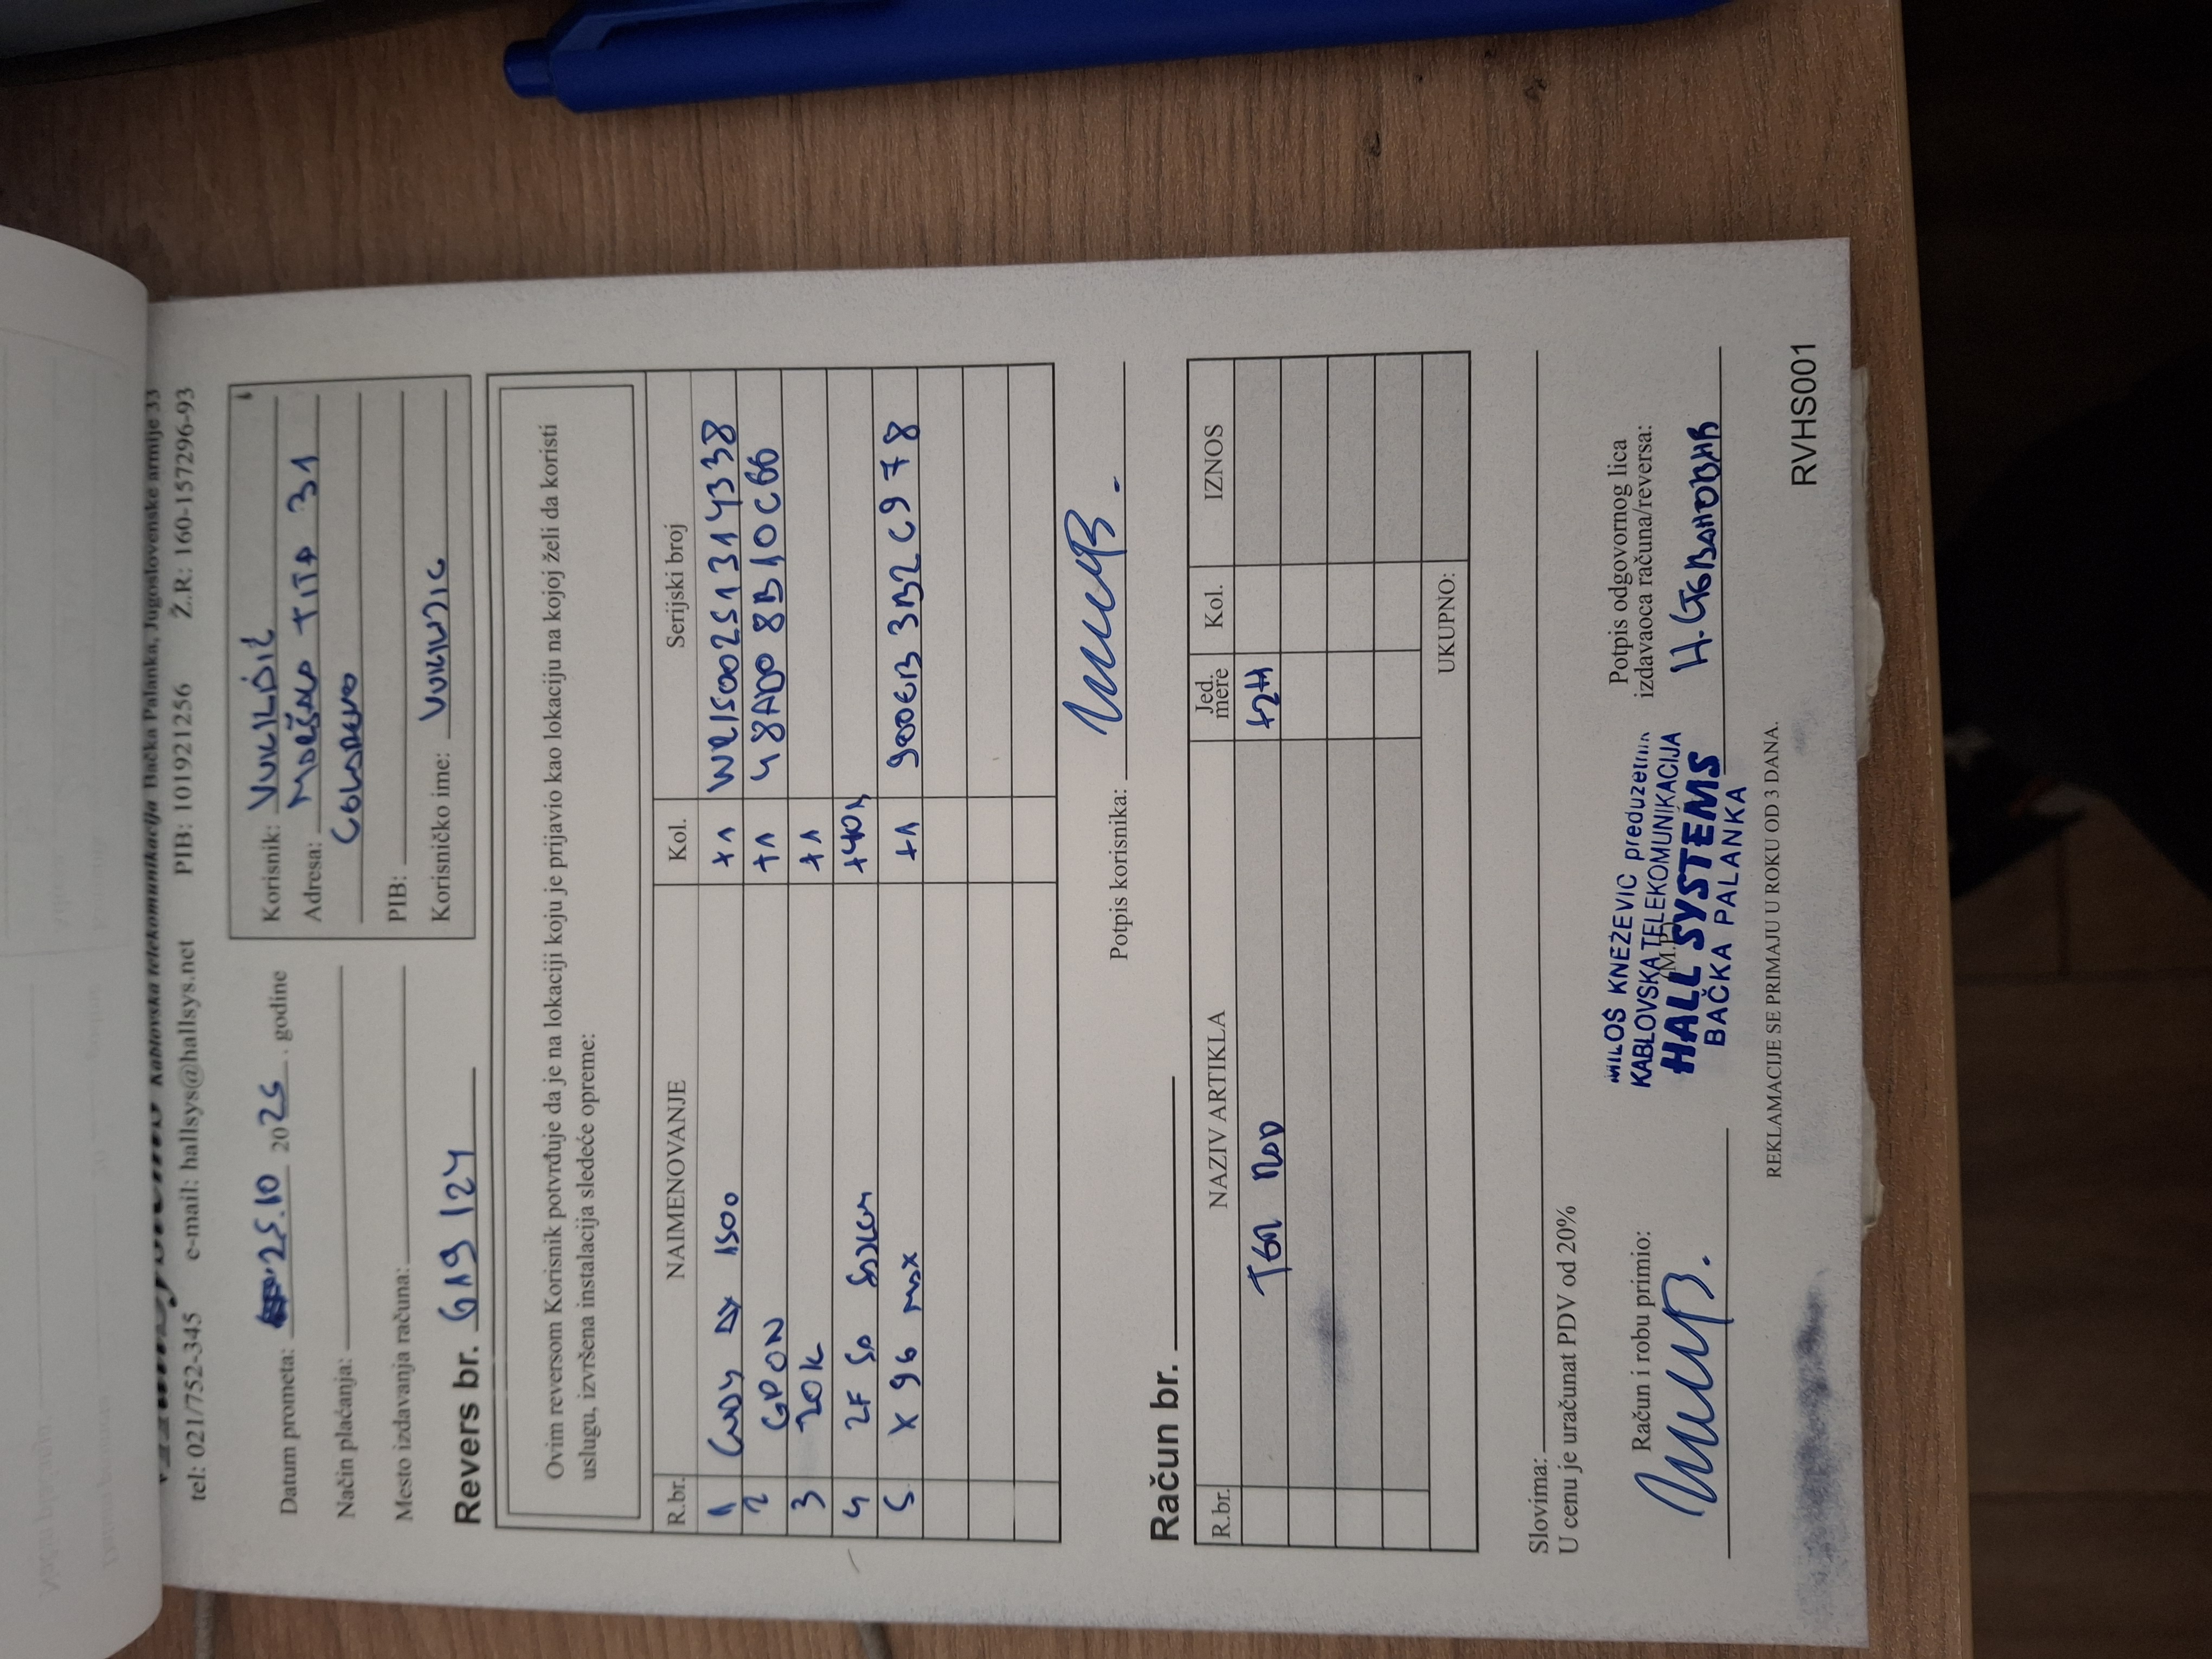 Kablovska telekomunikacija Bačka Palanka, Jugoslovenske armije 33
tel: 021/752-345 e-mail: hallsys@hallsys.net PIB: 101921256 Ž.R: 160-157296-93
Datum prometa: 25.10 2025. godine
Način plaćanja:
Mesto izdavanja računa:
Korisnik:
Adresa: TITA 31
PIB:
Korisničko ime: VUKILJIC
Revers br. 619 124
Ovim reversom Korisnik potvrđuje da je na lokaciji koju je prijavio kao lokaciju na kojoj želi da koristi
uslugu, izvršena instalacija sledeće opreme:
R.br. NAIMENOVANJE Kol. Serijski broj
1 1500 +1 WR1500251314338
2 GPON +1 48AD08B10C66
3 ZOK +1
4 2F +40m
5 X96 max +1 900EB3B2C978
Potpis korisnika:
Račun br.
R.br. NAZIV ARTIKLA Jed. mere Kol. IZNOS
+2H
UKUPNO:
Slovima:
U cenu je uračunat PDV od 20%
Račun i robu primio:
MILOŠ KNEŽEVIĆ preduzetnik
KABLOVSKA TELEKOMUNIKACIJA
(M.P.)
HALL SYSTEMS
BAČKA PALANKA
Potpis odgovornog lica
izdavaoca računa/reversa:
REKLAMACIJE SE PRIMAJU U ROKU OD 3 DANA.
RVHS001